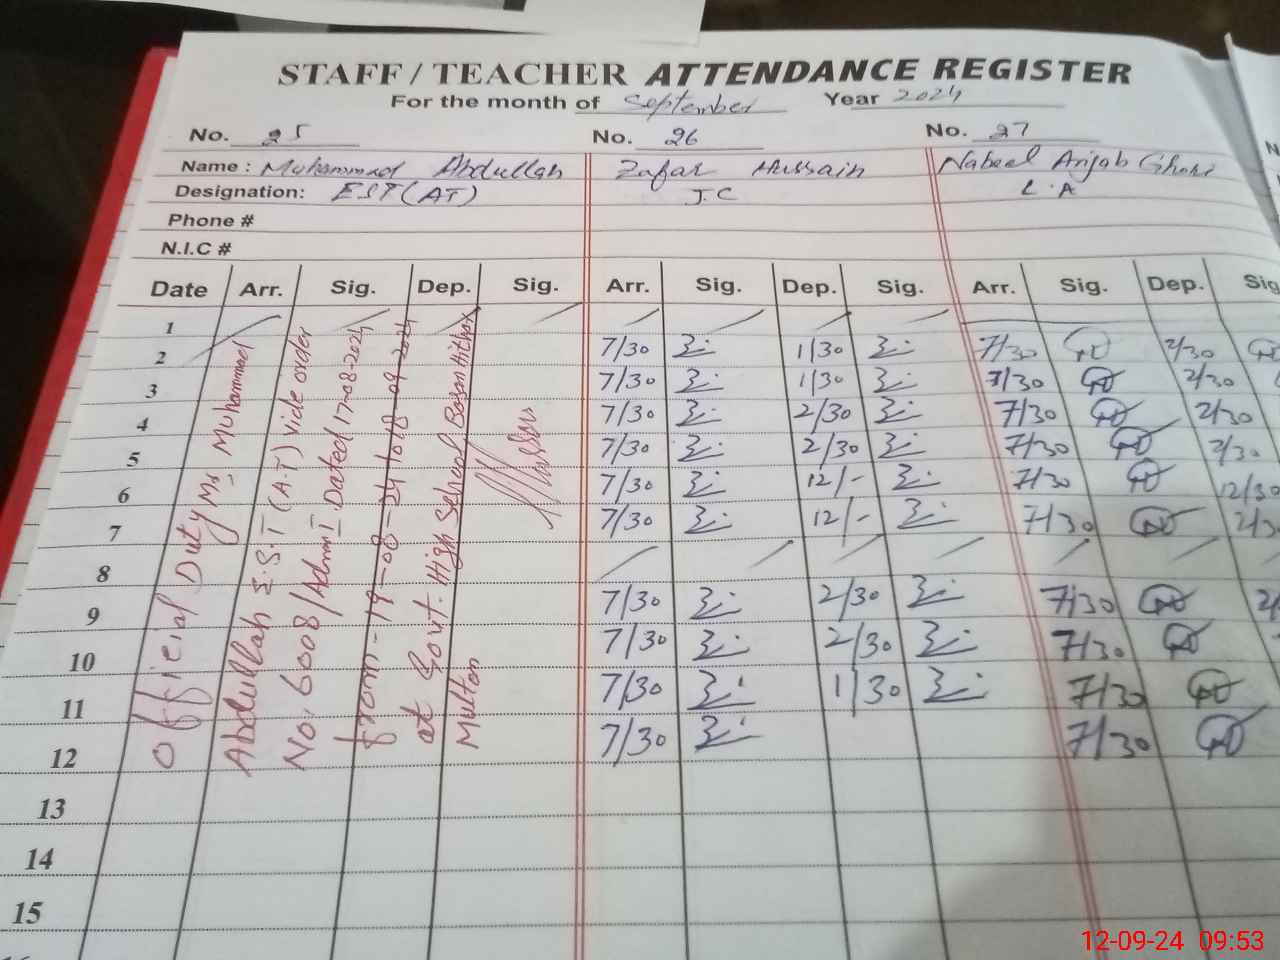 STAFF / TEACHER ATTENDANCE REGISTER
For the month of September Year 2024
No. 25 No. 26 No. 27
Name : Muhammad Abdullah Zafar Hussain Nabeel Anjab Ghori
Designation: EST (AT) J.C L.A
Phone #
N.I.C #
Date Arr. Sig. Dep. Sig. Arr. Sig. Dep. Sig. Arr. Sig. Dep. Sig
1
2 7/30 1/30 7/30 2/30
3 7/30 1/30 7/30 2/30
4 7/30 2/30 7/30 2/30
5 7/30 2/30 7/30 2/30
6 7/30 12/- 7/30 12/30
7 7/30 12/- 7/30 2/3
8
9 7/30 2/30 7/30 2/
10 7/30 2/30 7/30
11 7/30 1/30 7/30
12 7/30 7/30
13
14
15
Official Duty Mr. Muhammad
Abdullah E.S.T (A.T) vide order
No. 6008/Admn I Dated 17-08-2024
from - 19-08-24 to 18-09-2024
at Govt. High School Bosan Hithar
Multan
12-09-24 09:53